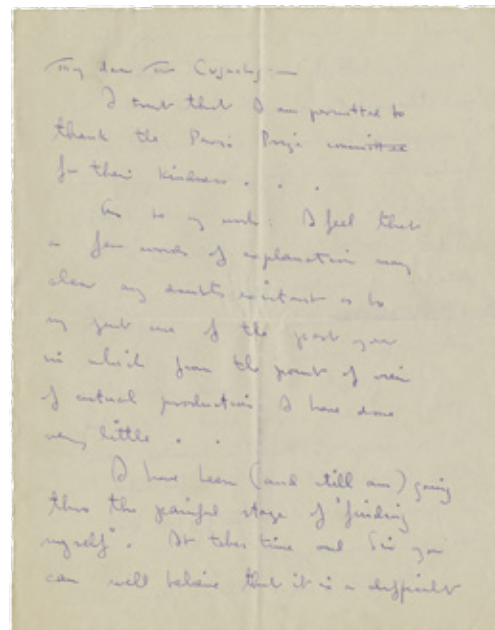 My dear Mr
I trust that I am permitted to
thank the Paris Prize committee
for their kindness . . .
As to my work: I feel that
a few words of explanation may
clear any doubts existant as to
my just use of the past year
in which from the point of view
of actual production I have done
very little . .
I have been (and still am) going
thro the painful stage of "finding
myself". It takes time and Sir you
can well believe that it is a difficult